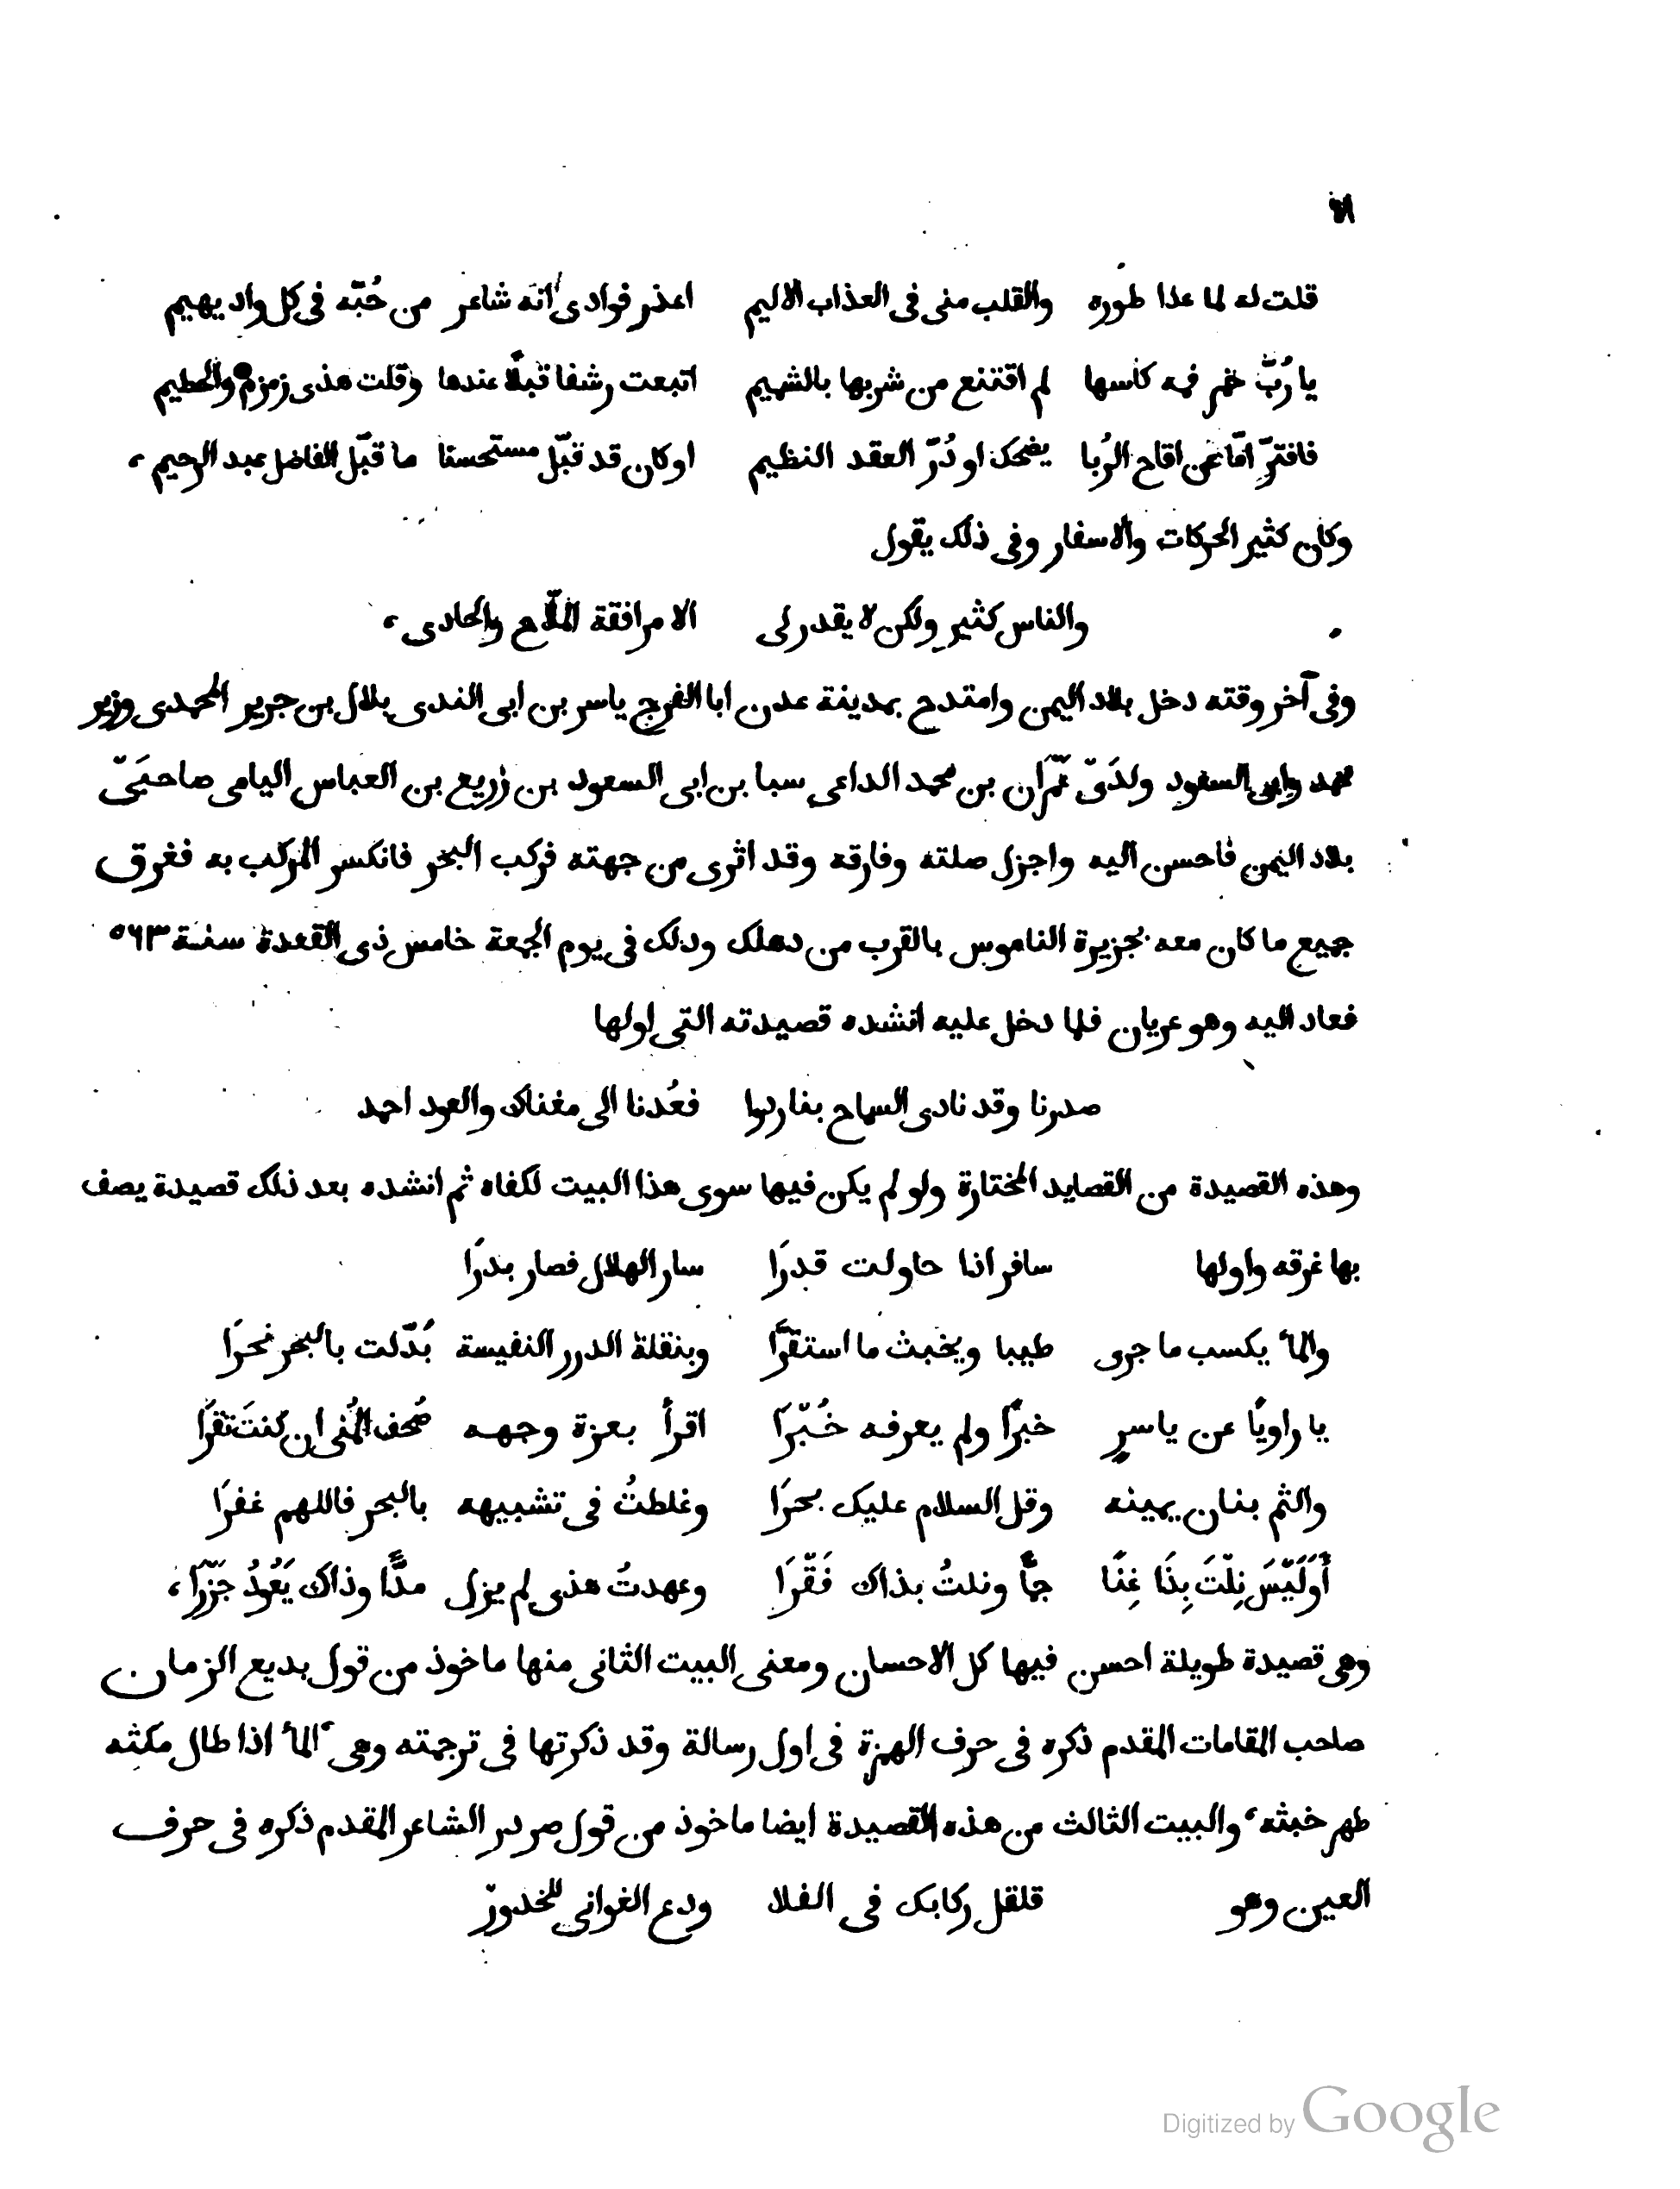 قلت له لما عدا طوره والقلب منى فى العذاب الاليم اعذر فوادى انه شاعر من حُبّه فى كل واد يهيم
يا رُبّ خمر فمه كاسها لم اقتنع من شربها بالشميم اتبعت رشفا قبلًا عندها وقلت هذى زمزم والحطيم
فافترّ امّا عن اقاح الرُبا يضحك او دُرّ العقد النظيم او كان قد قبّل مستحسنا ما قبّل الفاضل عبد الرحيم،
وكان كثير الحركات والاسفار وفى ذلك يقول
والناس كثير ولكن لا يقدر لى الا مرافقة الملّاح والحادى،
وفى آخر وقته دخل بلاد اليمن وامتدح بمدينة عدن ابا الفرج ياسر بن ابى الندى بلال بن جرير المحمدى وزير
محمد وابى السعود ولدَىّ عمّران بن محمد الداعى سبا بن ابى السعود بن زريع بن العباس اليامى صاحبَىّ
بلاد اليمن فاحسن اليه واجزل صلته وفارقه وقد اثرى من جهته فركب البحر فانكسر المركب به فغرق
جميع ما كان معه بجزيرة الناموس بالقرب من دهلك وذلك فى يوم الجمعة خامس ذى القعدة سنة ٥٦٣
فعاد اليه وهو عريان فلما دخل عليه انشده قصيدته التى اولها
صدرنا وقد نادى السماح بنا ردوا فعُدنا الى مغناك والعود احمد
وهذه القصيدة من القصايد المختارة ولو لم يكن فيها سوى هذا البيت لكفاه ثم انشده بعد ذلك قصيدة يصف
بها غرقه واولها سافر اذا حاولت قدرَا سار الهلال فصار بدرَا
والمآ يكسب ما جرى طيبا ويخبث ما استقرَّا وبنقلة الدرر النفيسة بُدّلت بالبحر نحرَا
يا راويًا عن ياسرٍ خبرًا ولم يعرفه خُبّرَا اقرأ بعزة وجهه صُحف المُنى ان كنتَ تقرَا
والثم بنان يمينه وقل السلام عليك بحرَا وغلطتُ فى تشبيهه بالبحر فاللهم غفرَا
أَوَلَيّسَ نِلّتَ بِذَا غِنًا جمًّا ونلتُ بذاك فَقّرَا وعهدتُ هذى لم يزل مدًّا وذاك يَعُودُ جزّرَا،
وهى قصيدة طويلة احسن فيها كل الاحسان ومعنى البيت الثانى منها ماخوذ من قول بديع الزمان
صاحب المقامات المقدم ذكره فى حرف الهمزة فى اول رسالة وقد ذكرتها فى ترجمته وهى ،المآ اذا طال مكثه
ظهر خبثه، والبيت الثالث من هذه القصيدة ايضا ماخوذ من قول صردر الشاعر المقدم ذكره فى حرف
العين وهو قلقل ركابك فى الفلا ودع الغوانى للخدورّ
Digitized by Google